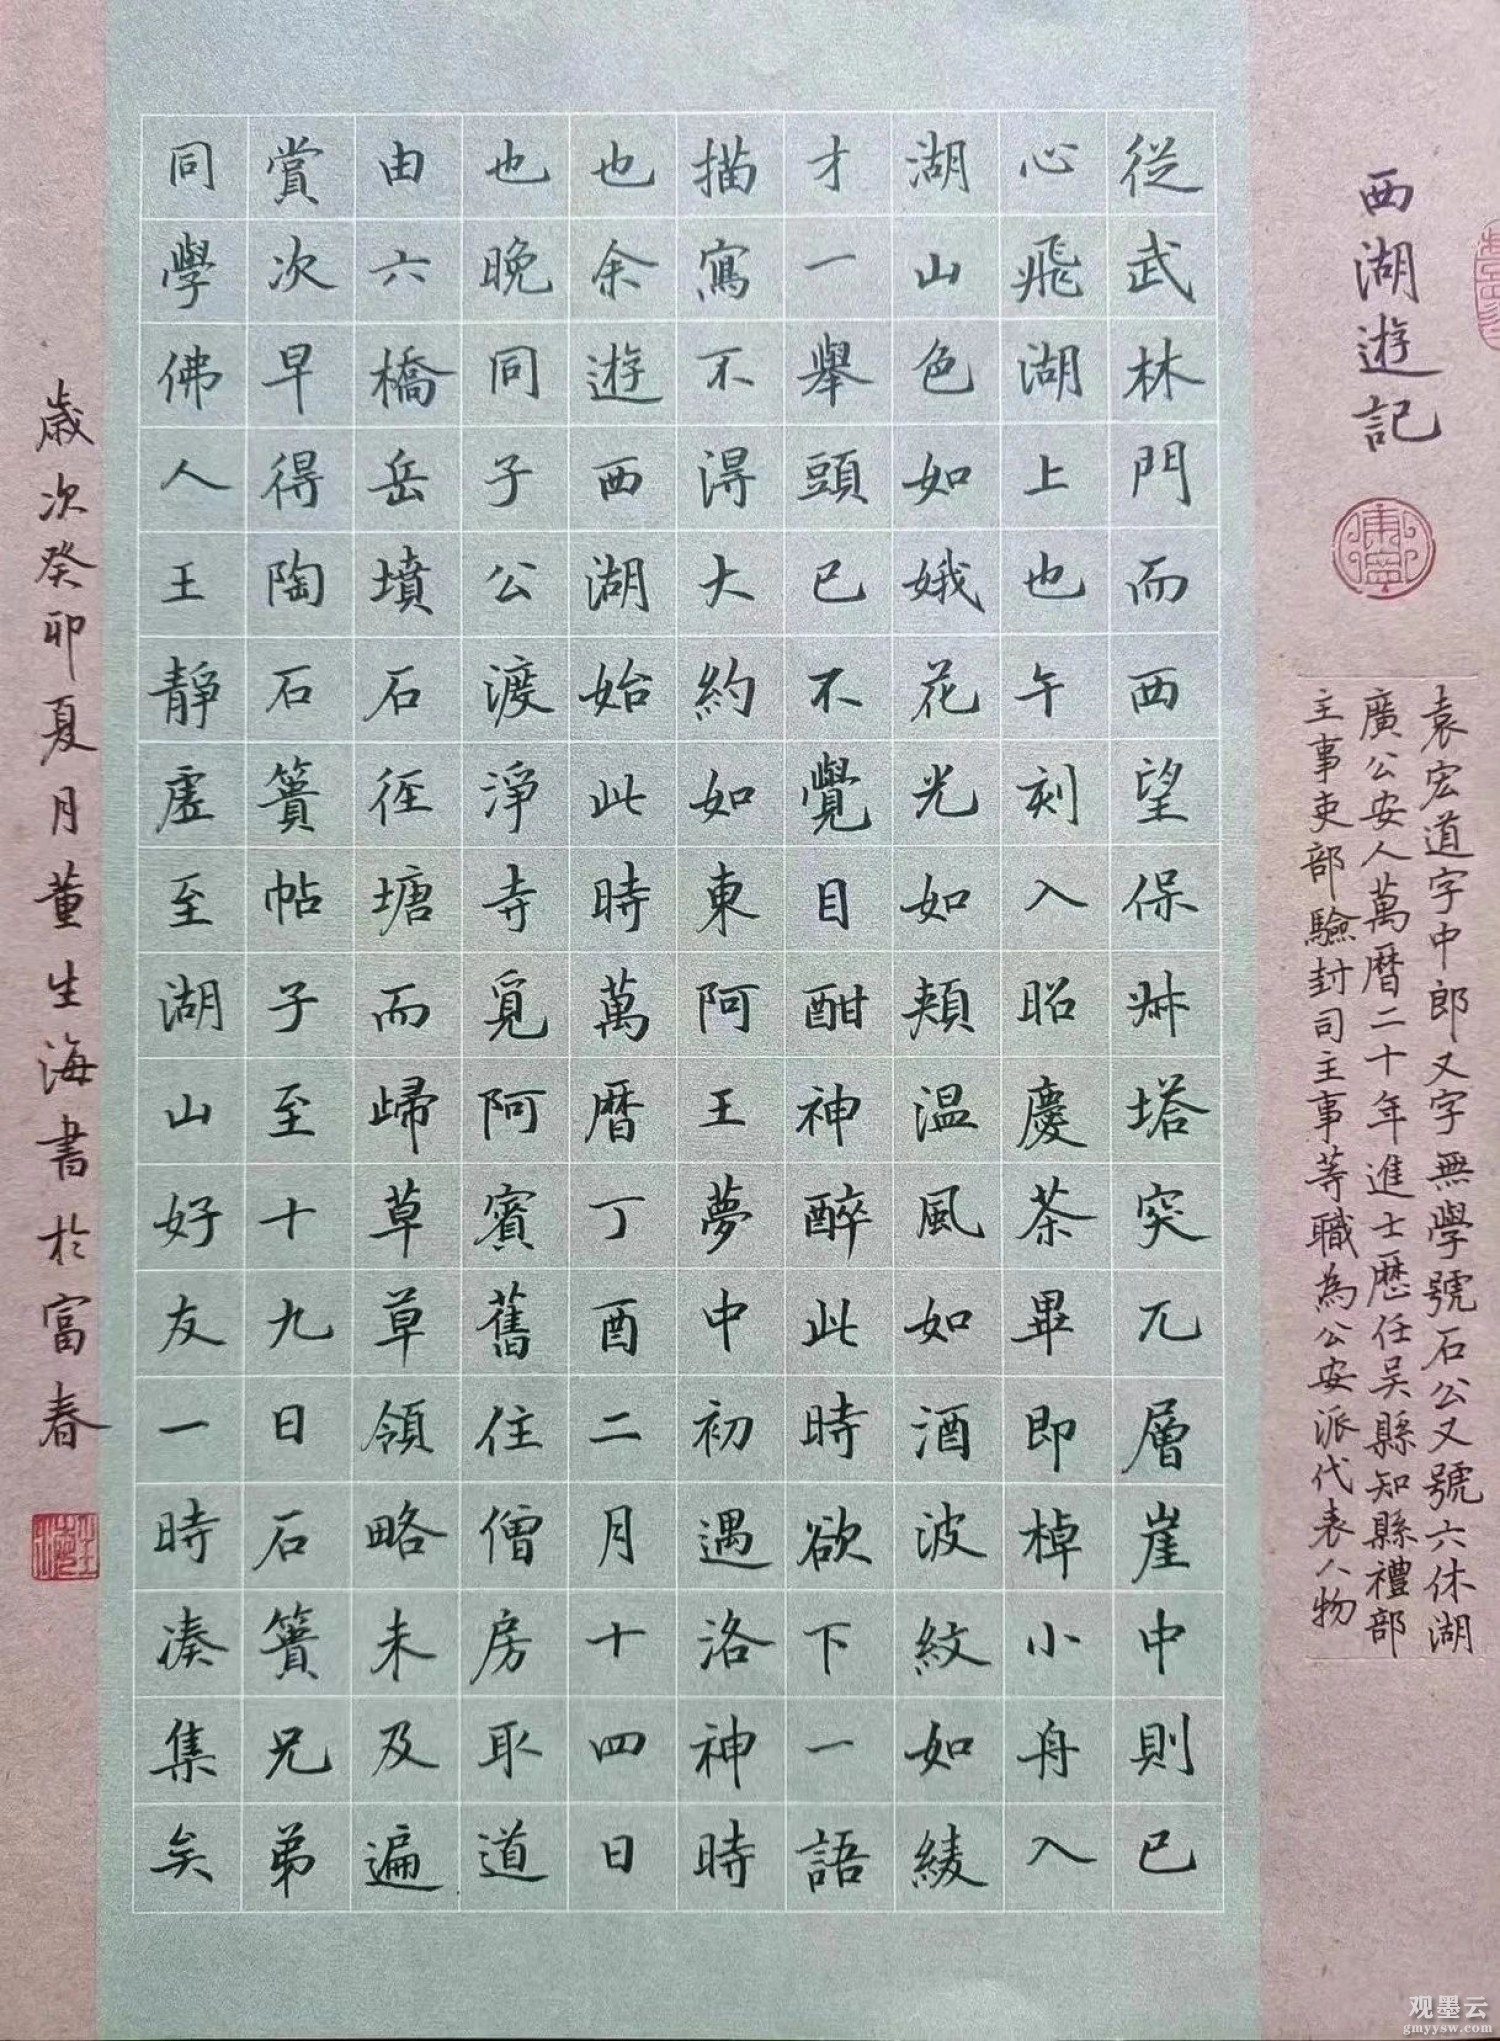 西湖遊記
袁宏道字中郎又字無學號石公又號六休湖
廣公安人萬暦二十年進士歷任吴縣知縣禮部
主事吏部驗封司主事等職為公安派代表人物
從武林門而西望保叔塔突兀層崖中則已
心飛湖上也午刻入昭慶茶畢即棹小舟入
湖山色如娥花光如頰温風如酒波紋如綾
才一舉頭已不覺目酣神醉此時欲下一語
描寫不得大約如東阿王夢中初遇洛神時
也余遊西湖始此時萬暦丁酉二月十四日
也晚同子公渡淨寺覓阿賓舊住僧房取道
由六橋岳墳石徑塘而歸草草領略未及遍
賞次早得陶石簣帖子至十九日石簣兄弟
同學佛人王靜虛至湖山好友一時湊集矣
歲次癸卯夏月董生海書於富春
观墨云
gmyysw.com